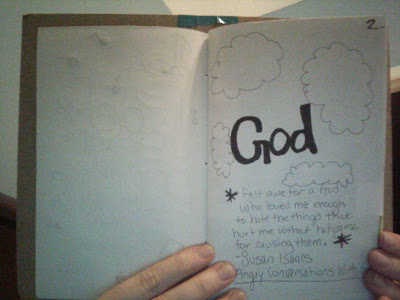 2
God
* Felt awe for a God
who loved me enough
to hate the things that
hurt me without hating me
for causing them. *
-Susan Isaacs
Angry Conversations With